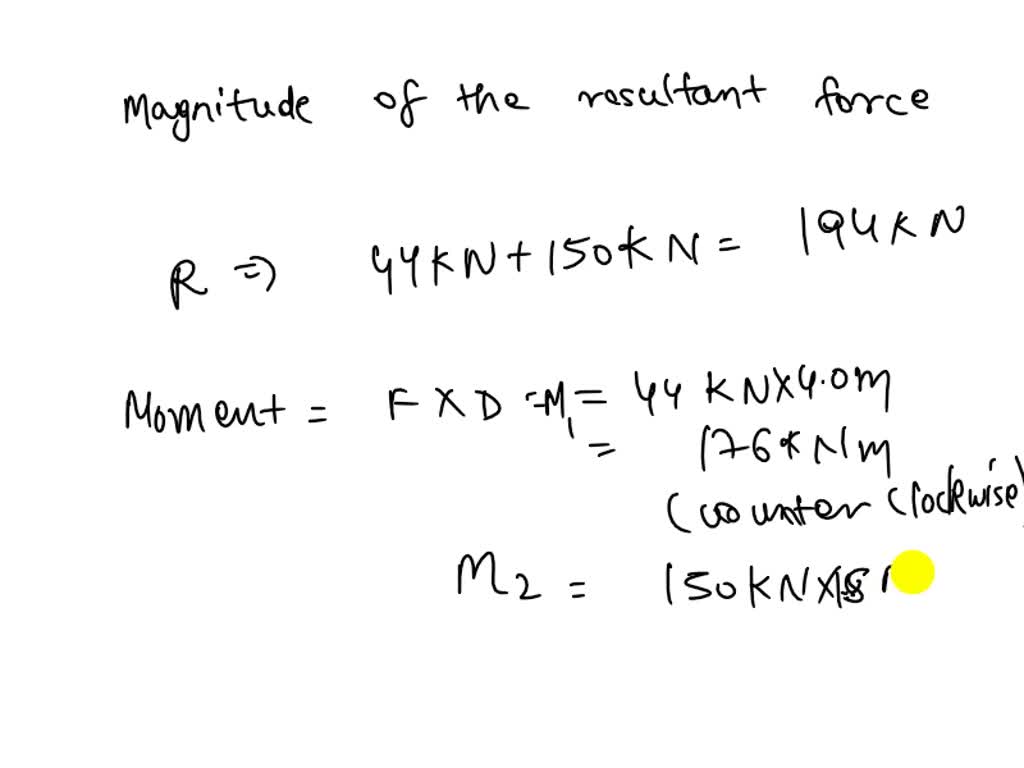 Magnitude of the resultant force
R ⇒ 44KN + 150KN = 194KN
Moment = F X D = M₁ = 44 KN X 4.0m
= 176KNm
(counter clockwise)
M2 = 150KN X